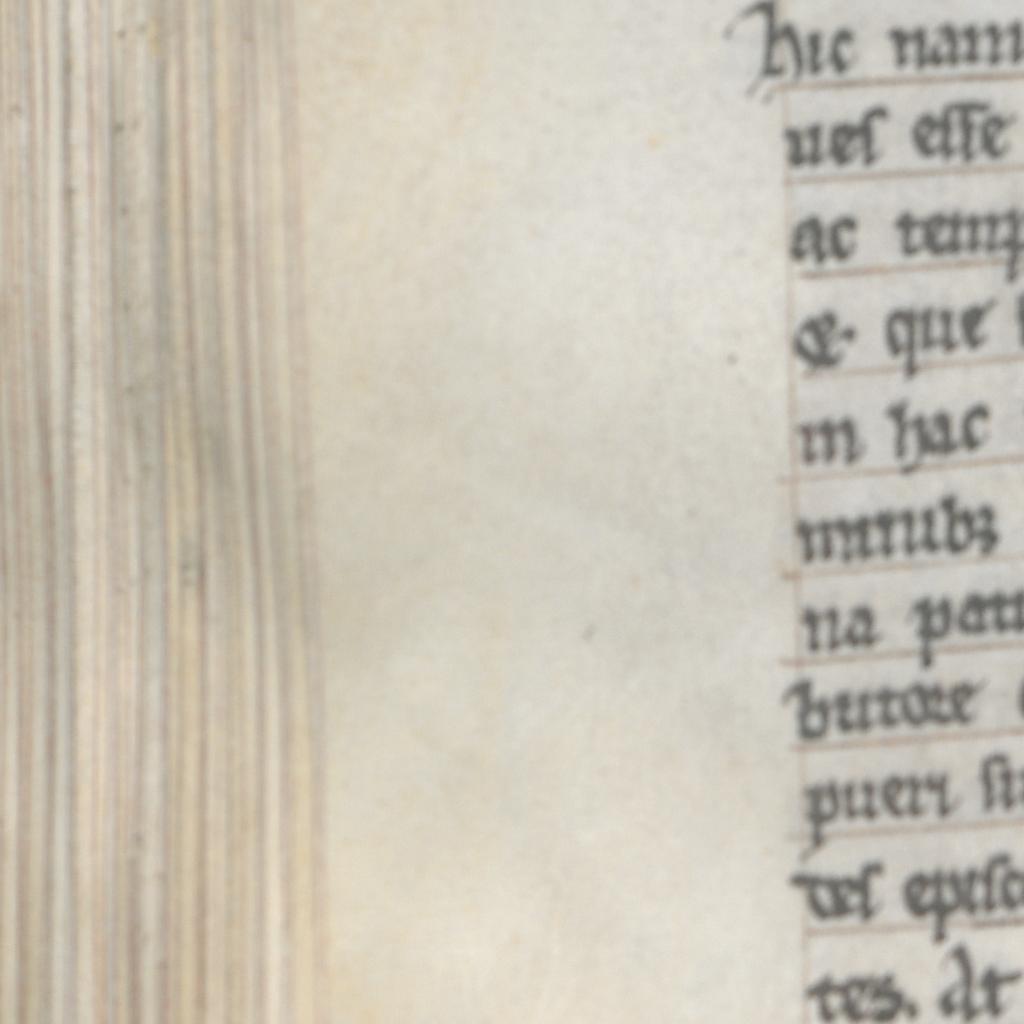 hic nam
ues esse
ac temp
que
in hac
nitrubꝫ
na pau
butore
pueri su
des episc
tes. At